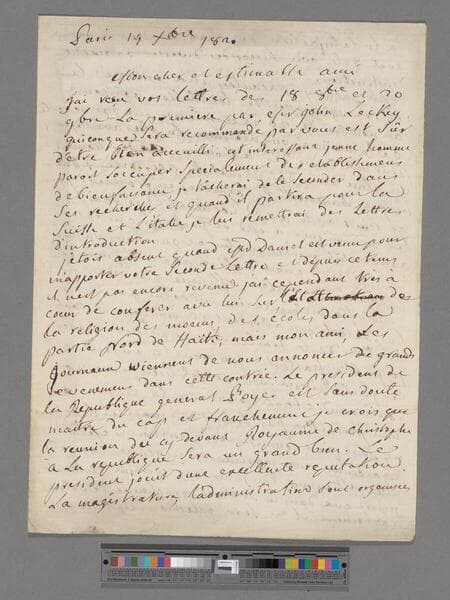 Paris 14 Xbre 1820
Mon cher et estimable ami
j'ai reçu vos lettres des 18 8bre et 20
9bre La premiere par Mr John Leckey
quiconque sera recommandé par vous est sûr
d'etre bien accueilli. cet intéressant jeune homme
paroit s'occuper specialement des etablissemens
de bienfaisance je tacherai de le seconder dans
ses recherches et quand il partira pour la
Suisse et L'italie je lui remettrai des Lettres
d'introduction
j'etois absent quand Daniel est venu pour
m'apporter votre seconde Lettre et depuis ce tems
il n'est pas encore revenu. j'ai cependant très à
cœur de conferer avec lui sur l'état des
La religion des mœurs, des écoles dans la
partie Nord de Haiti, mais mon ami, Les
Journaux viennent de nous annoncer de grands
evenemens dans cette contrée. Le president de
La Republique general Boyer est sans doute
maitre du cap et franchement je crois que
la reunion du cy devant Royaume de Christophe
a La republique sera un grand bien. Le
president jouit d'une excellente reputation
La magistrature, l'administration sont organisées